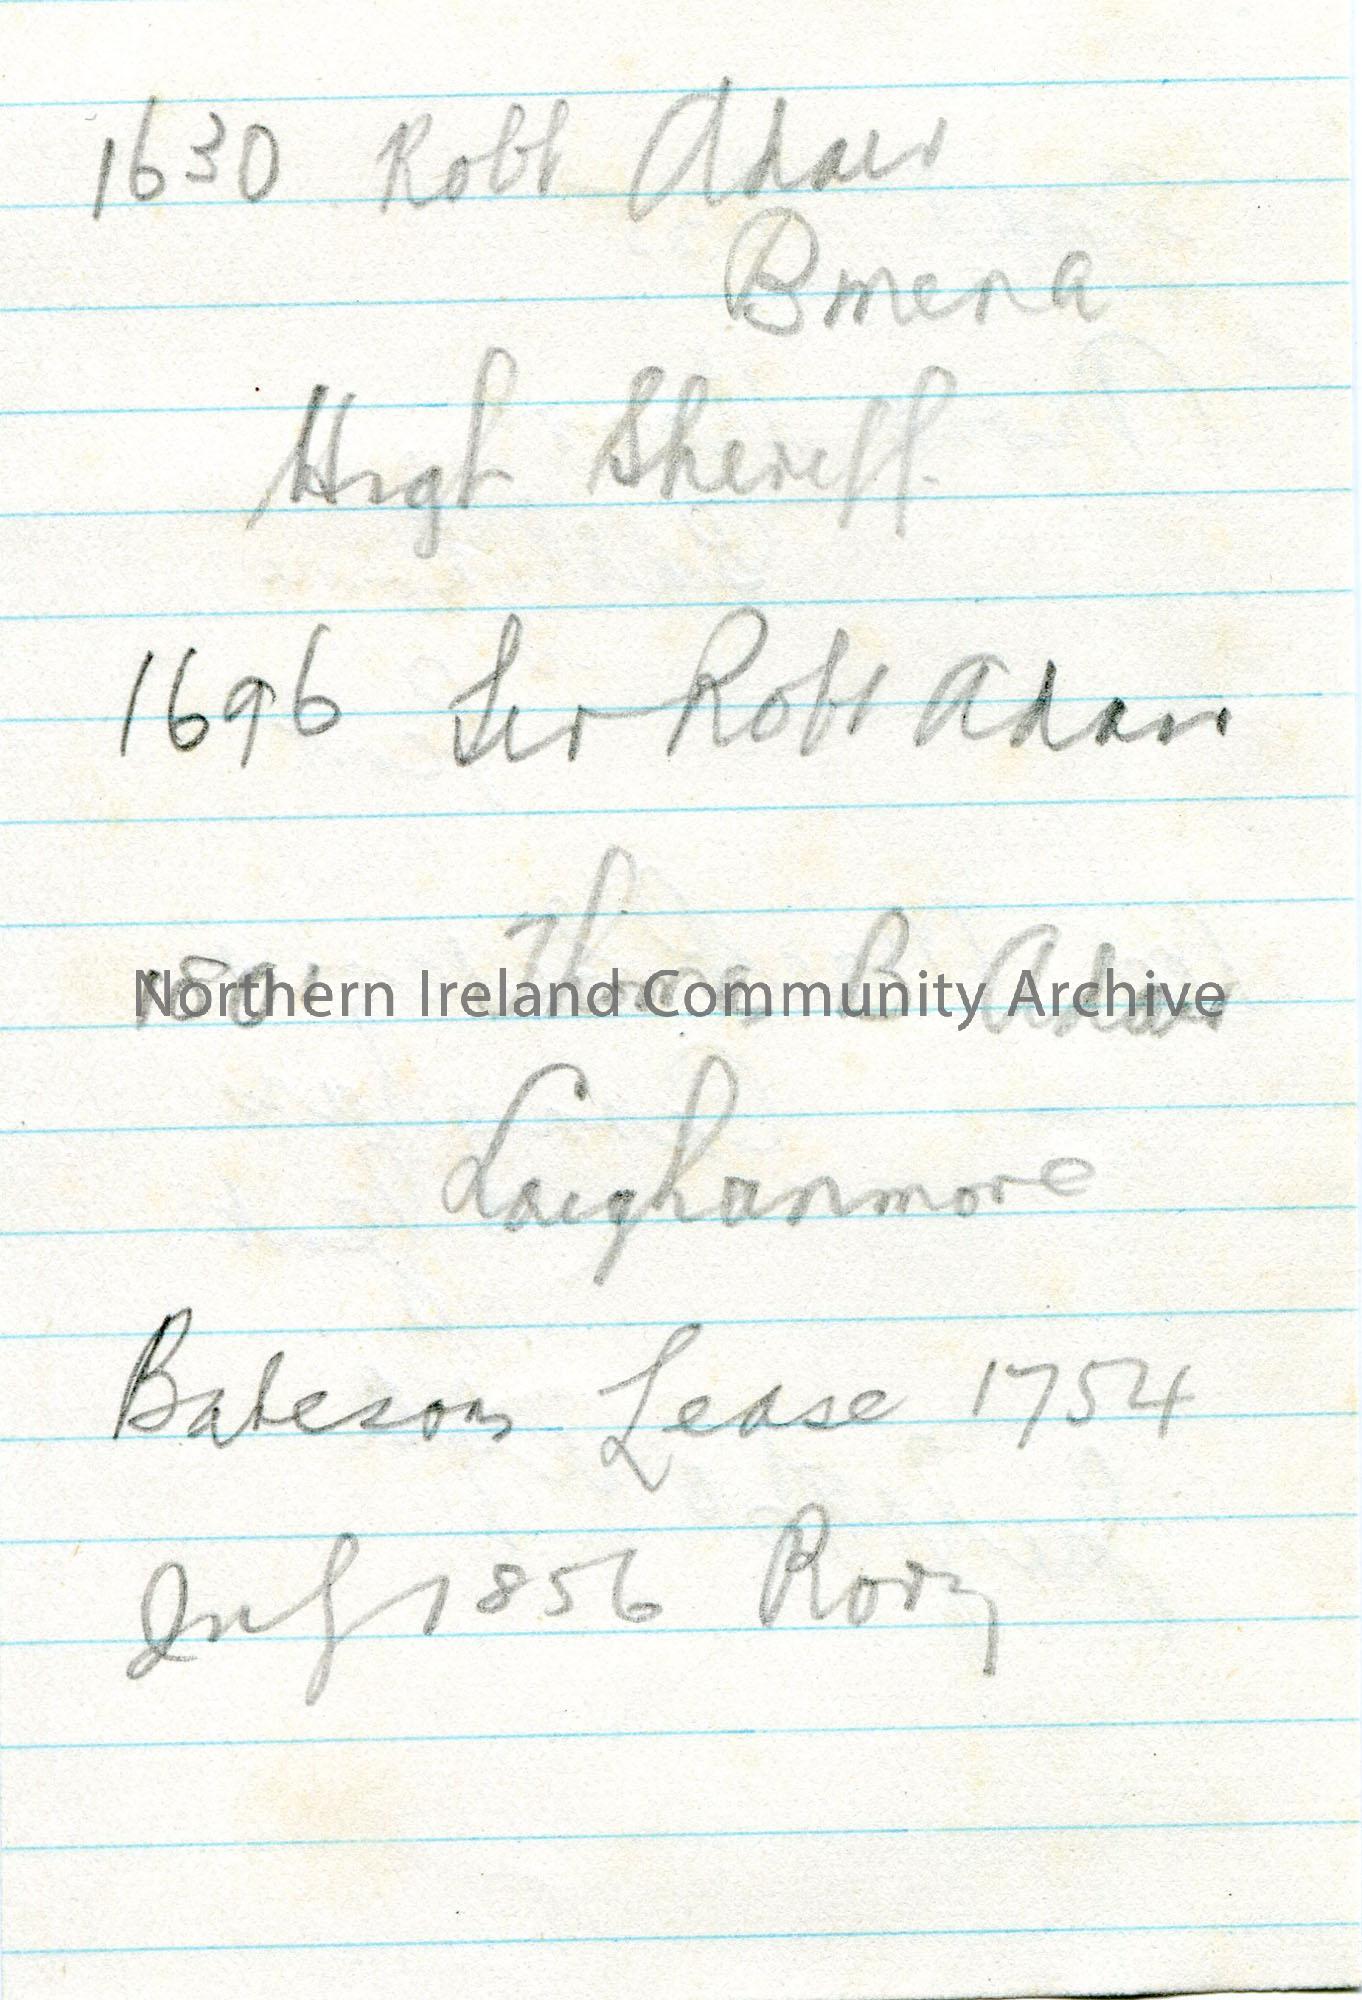 1630 Robt Adair
Bmena
High Sheriff.
1696 Sir Robt Adair
Thomas B Adair
Northern Ireland Community Archive
Loughanmore
Bateson Lease 1754
July 1856 Rory